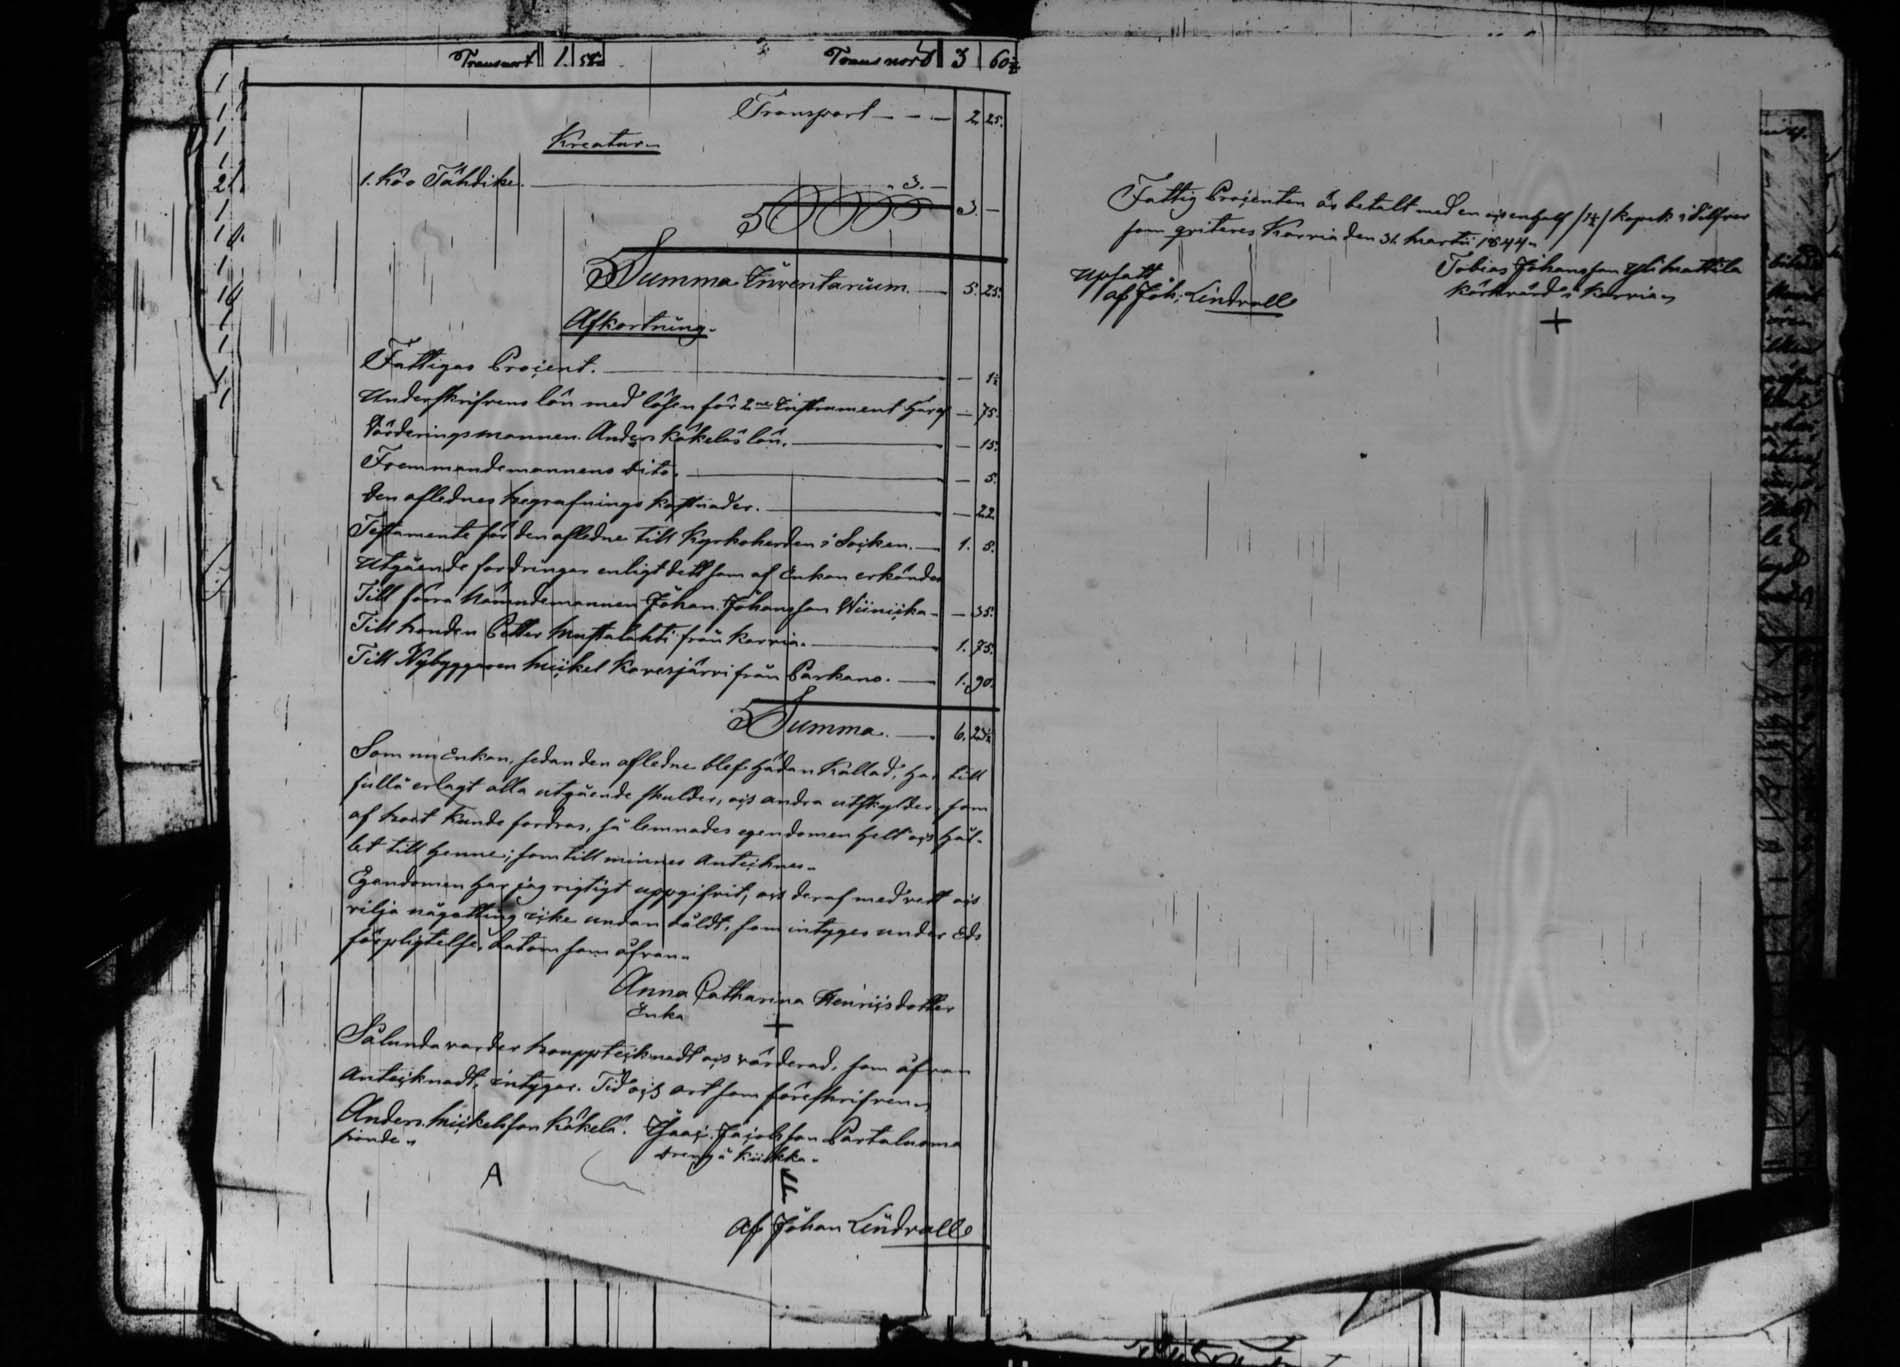 Transport 1. 58
Transport 3 60½
Transport - - - 2. 25.
Kreatur
1. Koo Tähdike. 3. -
3. -
Summa Inventarium. 5. 25.
Afkortning.
Fattigas Procent. - 1½
Underskrifvens lön med lösen för 2ne Instrument häraf - 75.
Värderingsmannen Anders Käkeläs lön. - 15.
Fremmandemannens dito. - 5.
Den aflednes begrafnings kostnader. - 22
Testamente för den afledne till Kyrkoherden i Socken. 1. 5.
Utgående fordringar enligt ditt som af Enkan erkändes
Till förra Nämndemannen Johan Johansson Wiinicka - 35.
Till bonden Petter Mustalahti från Karvia. 1. 75.
Till Nybyggaren Michel Kovesjärvi från Parkano. 1. 90.
Summa. 6. 23½
Som nu Enkan, sedan den afledne blef hädan kallad, har till
fullo erlagt alla utgående skulder, och andra utskylder, som
af boet kunde fordras, så lemnades egendomen helt och hål-
let till henne; som till minnes antecknas.
Egendomen har jag rigtigt uppgifvit, och deraf med vett och
vilja någotting icke undan dåldt, som intyges under Eds
förpligtelse, datom som åfvan.
Anna Catharina Henricsdotter
Enka
+
Sålunda varder bouppteicknadt och värderad, som åfvan
Anteicknadt, intygar. Tid och ort som föreskrifven
Anders Mickelsson Käkelä. Isaac Jacobsson Partaluoma
bonde
dreng å Kiikka.
A
af Johan Lindvall
Fattig Procenten är betalt med en och en half /1½/ kopek i Silfver
som qviteras Karvia den 31 Martii 1844
Tobias Johansson Yli Mattila
Uppsatt
af Joh. Lindvall
Körkvärd i Karvia
+